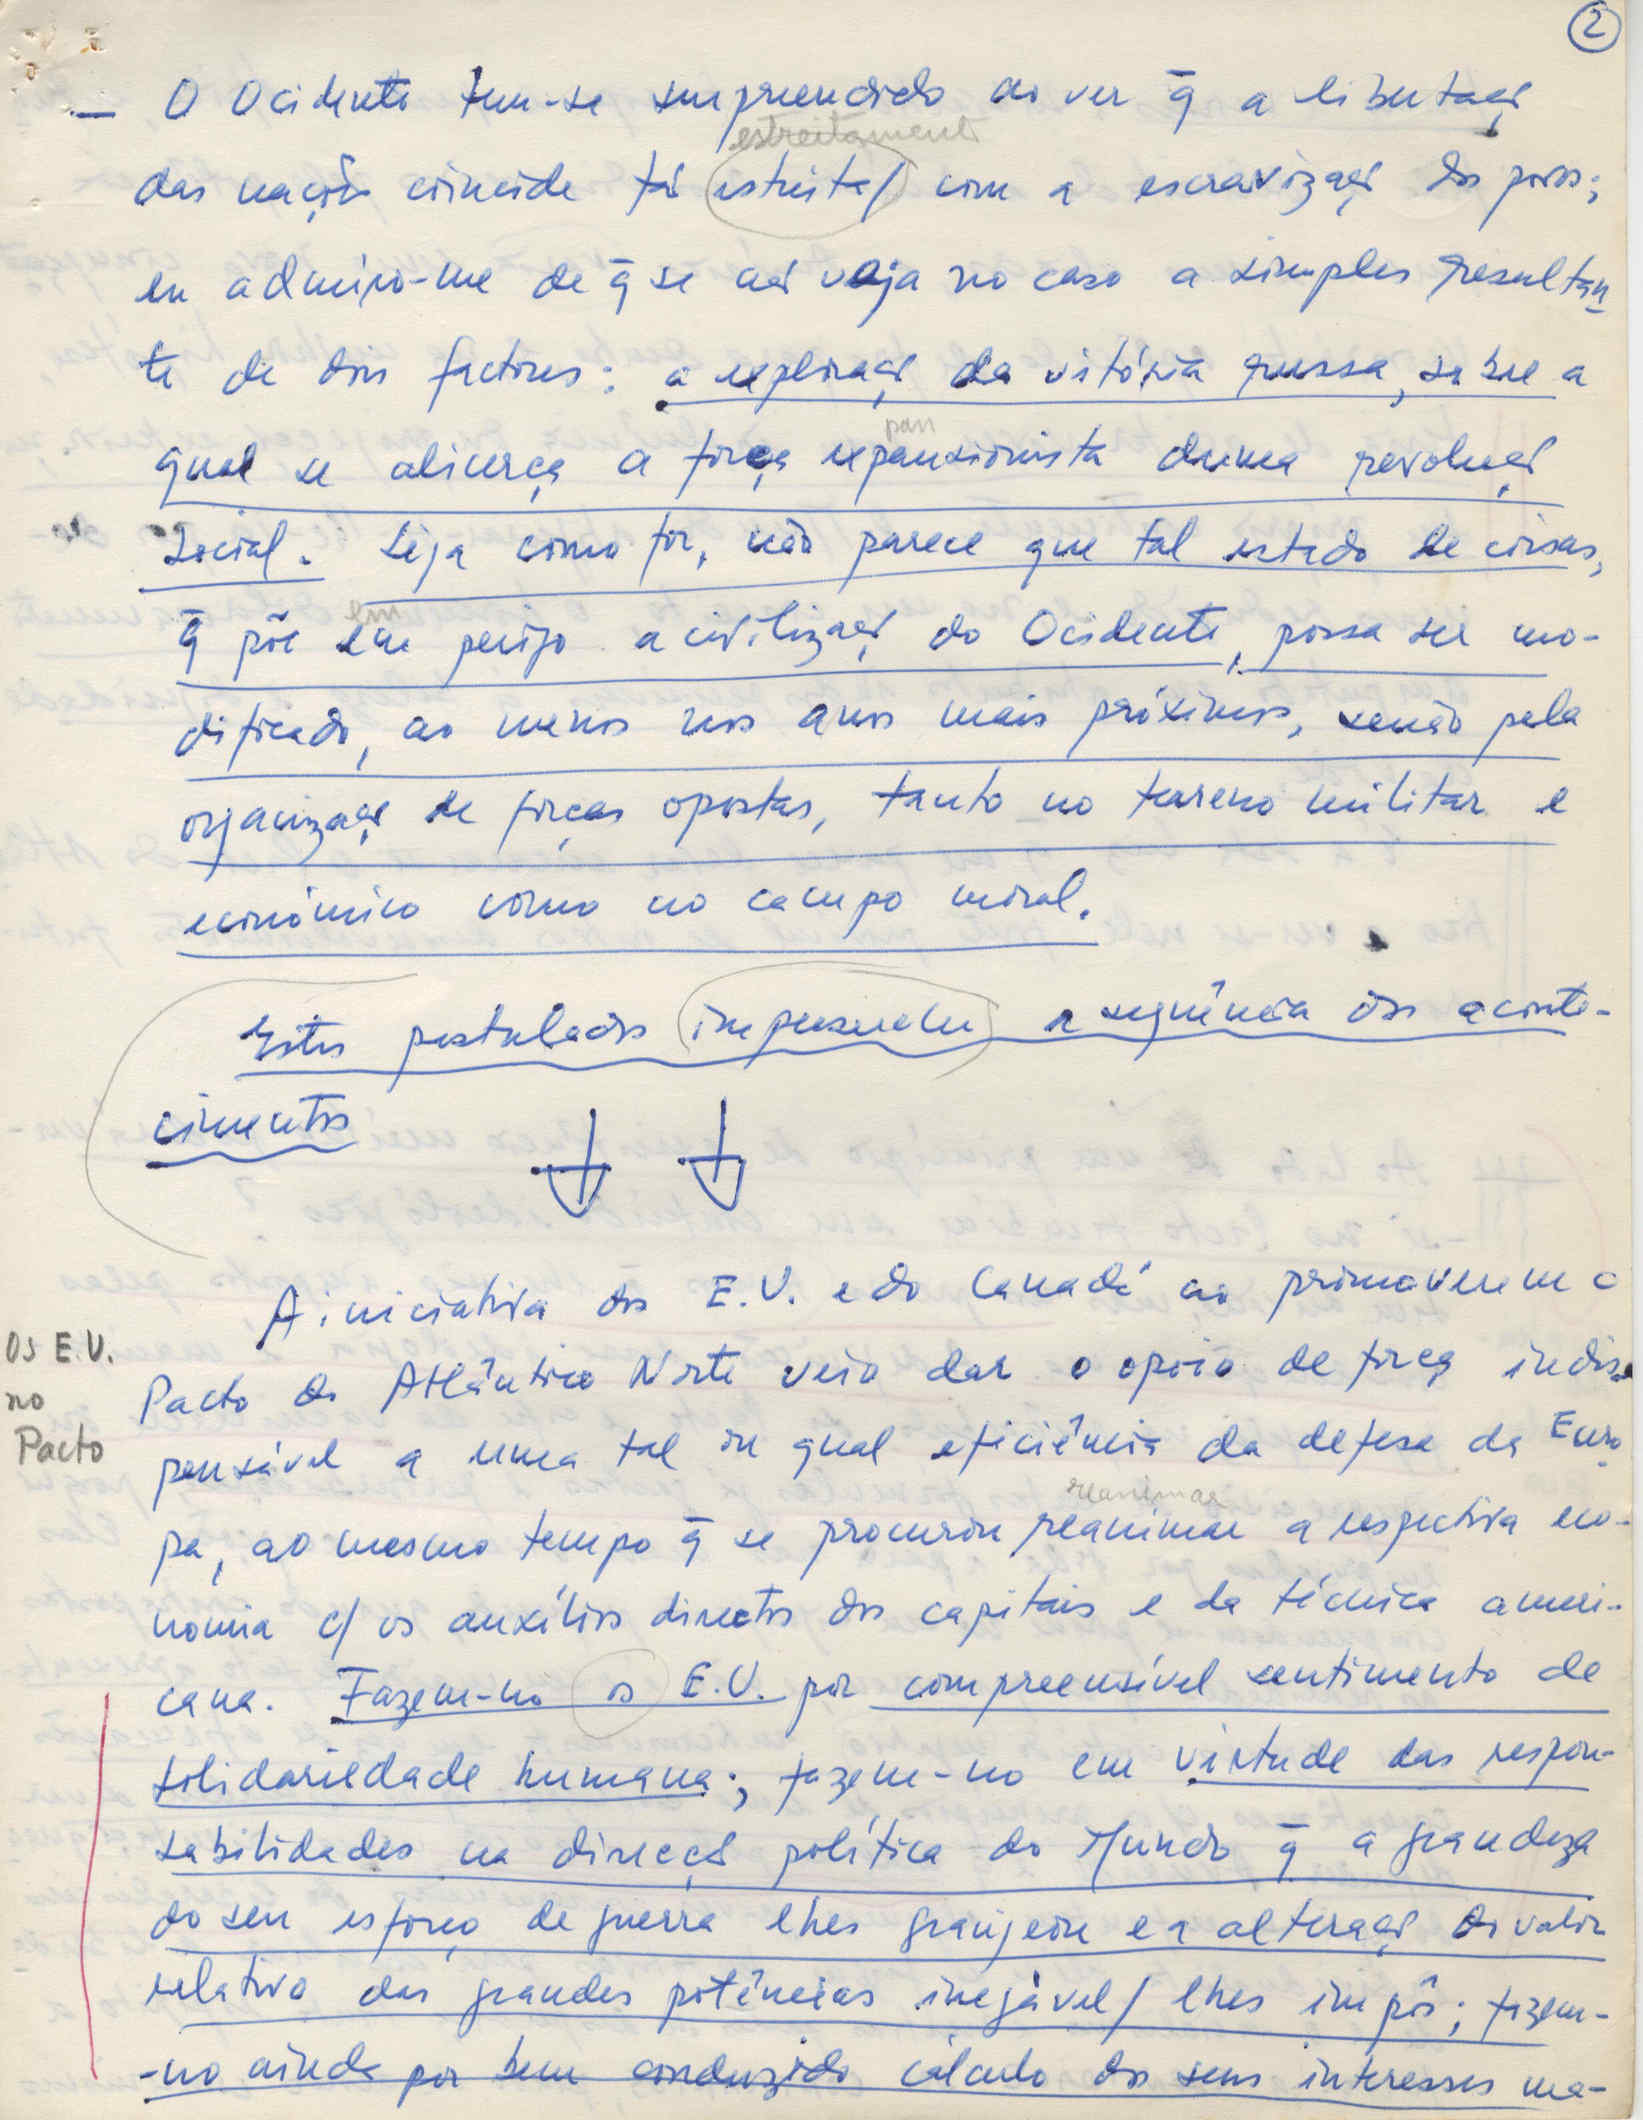 2
— O Ocidente tem-se surpreendido ao ver q̄ a libertação
estreitamente
das nações coincide tão estreita/ com a escravização dos povos;
eu admiro-me de q̄ se não veja no caso a simples resultan-
te de dois factores: a exploração da vitória russa, sobre a
pan
qual se alicerça a força expansionista duma revolução
social. Seja como for, não parece que tal estado de coisas,
em
q̄ põe em perigo a civilização do Ocidente, possa ser mo-
dificado, ao menos nos anos mais próximos, senão pela
organização de forças opostas, tanto no terreno militar e
económico como no campo moral.
Estes postulados impuseram a sequência dos aconte-
cimentos
A iniciativa dos E.U. e do Canadá ao promoverem o
OS E.U.
no
Pacto
Pacto do Atlântico Norte veio dar o apoio de força indis-
pensável a uma tal ou qual eficiência da defesa da Euro-
reanimar
pa, ao mesmo tempo q̄ se procurou reanimar a respectiva eco-
nomia c/ os auxílios directos dos capitais e da técnica ameri-
cana. Fazem-no os E.U. por compreensível sentimento de
solidariedade humana; fazem-no em virtude das respon-
sabilidades na direcção política do Mundo q̄ a grandeza
do seu esforço de guerra lhes granjeou e a alteração do valor
relativo das grandes potências inegável/ lhes impôs; fazem-
-no ainda por bem conduzido cálculo dos seus interesses ma-